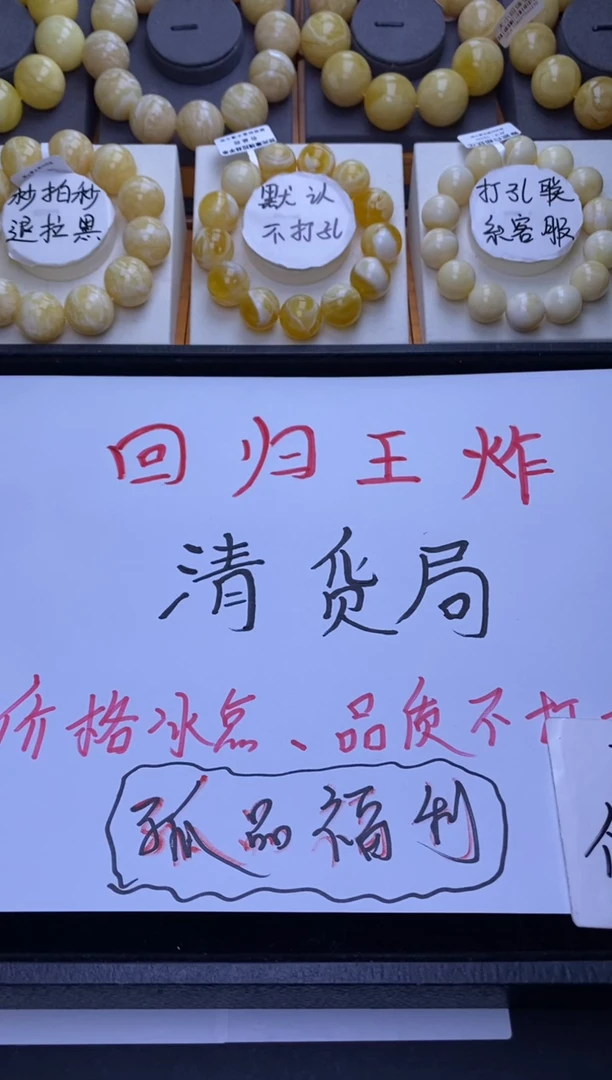 秒拍秒
退拉黑
默认
不打孔
打孔联
系客服
回归王炸
清货局
价格冰点、品质不打
孤品福利